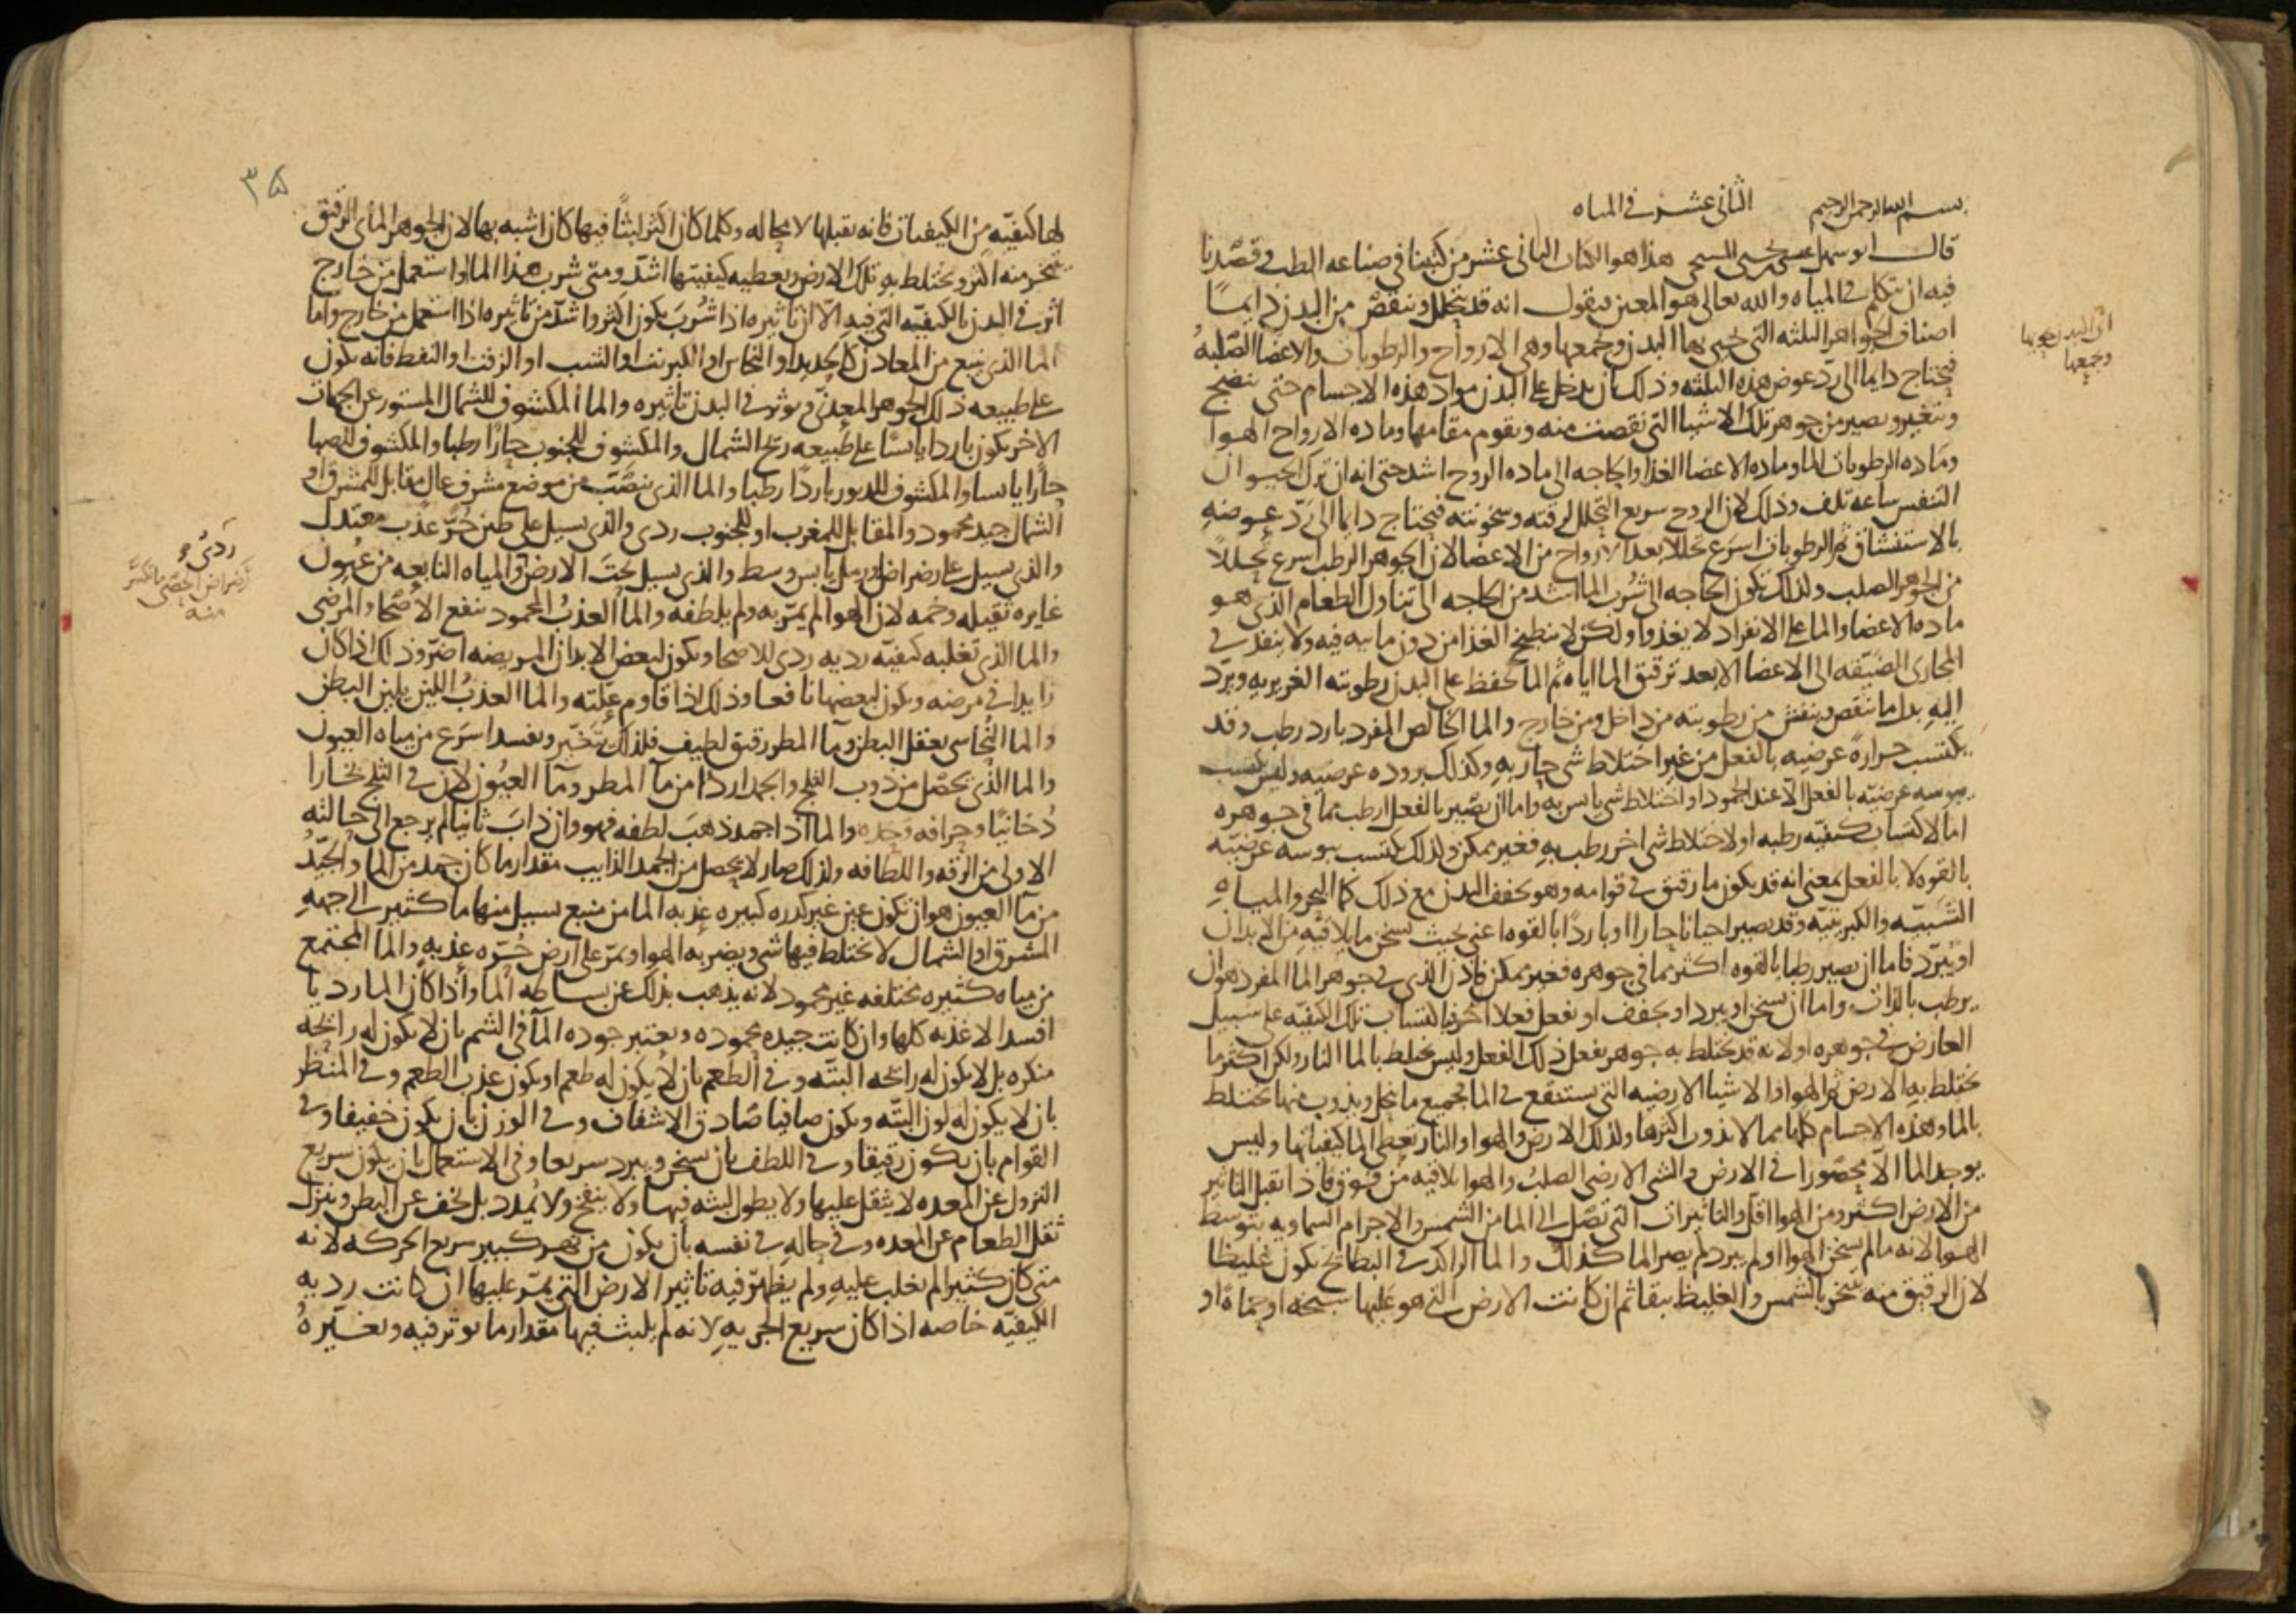 بسم الله الرحمن الرحيم الثانى عشر فى المياه
قال ابو سهل عيسى بن يحيى المسيحى هذا هو الكتاب الثانى عشر من كتبنا فى صناعه الطب وقصدنا
فيه ان نتكلم فى المياه والله تعالى هو المعين فنقول انه قد يتحلل وينقص من البدن دايما
اصناف الجواهر الثلثه التى يحيى بها البدن وجمعها وهى الارواح والرطوبات والاعضا الصلبه
فيحتاج دايما الى رد عوض هذه الثلثه وذلك بان يدخل على البدن مواد هذه الاجسام حتى ينضج
ويتغير ويصير من جوهر تلك الاشيا التى نقصت منه ويقوم مقامها وماده الارواح الهوا
وماده الرطوبات الما وماده الاعضا الغذا والحاجه الى ماده الروح اشد حتى انه ان ترك الحيوان
التنفس ساعه تلف وذلك لان الروح سريع التحلل لرقته وسخونته فيحتاج دايما الى رد عوضه
بالاستنشاق ثم الرطوبات اسرع تحللا بعد الارواح من الاعضا لان الجوهر الرطب اسرع تحللا
من الجوهر الصلب ولذلك تكون الحاجه الى شرب الما اشد من الحاجه الى تناول الطعام الذى هو
ماده الاعضا والما على الانفراد لا يغذوا ولكن لا ينطبخ الغذا من دون مائيه فيه ولا ينفذ فى
المجارى الضيقه الى الاعضا الا بعد ترقيق الما اياه ثم الما يحفظ على البدن رطوبته الغريزيه ويرد
اليه بدل ما ينقص وينفش من رطوبته من داخل ومن خارج والما الخالص المفرد بارد رطب وقد
يكتسب حرارة عرضيه بالفعل من غير اختلاط شى حار به وكذلك بروده عرضيه وليس يكتسب
يبوسه عرضيه بالفعل الا عند الجمود او اختلاط شى يابس به واما ان يصير بالفعل ارطب مما فى جوهره
اما لاكتساب كيفيه رطبه او لاختلاط شى اخر رطب به فغير ممكن ولذلك يكتسب يبوسه عرضيه
بالقوه لا بالفعل بمعنى انه قد يكون ما رقيق فى قوامه وهو يجفف البدن مع ذلك كما البحر والمياه
الشبيه والكبريتيه وقد يصير احيانا حارا او باردا بالقوه اعنى بحيث يسخن ما يلاقيه من الابدان
او يبرد فاما ان يصير رطبا بالقوه اكثر مما فى جوهره فغير ممكن فاذن الذى فى جوهر الما المفرد هو ان
يرطب بالذات واما ان يسخن او يبرد او يجفف او يفعل فعلا اخر فباكتساب تلك الكيفيه على سبيل
العارض فى جوهره او لانه قد يختلط به جوهر يفعل ذلك الفعل وليس يختلط بالما النار ولكن اكثر ما
يختلط به الارض ثم الهوا والاشيا الارضيه التى يستنقع فى الما جميع ما ينحل ويذوب منها يختلط
بالما وهذه الاجسام كلها مما لا يذوب اكثرها ولذلك الارض والهوا والنار تعطى الما كيفياتها وليس
يوجد الما الا محصورا فى الارض والشى الارضى الصلب والهوا يلاقيه من فوق فاذا يقبل التاثير
من الارض اكثر ومن الهوا اقل والتاثيرات التى تصل الى الما من الشمس والاجرام السماويه بتوسط
الهوا لانه ما لم يسخن الهوا او لم يبرد لم يصر الما كذلك والما الراكد فى البطائح يكون غليظا
لان الرقيق منه يتبخر بالشمس والغليظ يبقا ثم ان كانت الارض التى هو عليها سبخه او حماه او
اى البدن يحييها
وجمعها
٣٥
لها كيفيه من الكيفيات فانه يقبلها لا محاله وكلما كان اكثر لبثا فيها كان اشبه بها لان الجوهر المائى الرقيق
يتبخر منه اكثر ويختلط به تلك الارض ويعطيه كيفيتها اشد ومتى شرب هذا الما او استعمل من خارج
اثر فى البدن بالكيفيه التى فيه الا ان تاثيره اذا شرب يكون اكثر واشد من تاثيره اذا استعمل من خارج واما
الما الذى ينبع من المعادن كالحديد او النحاس او الكبريت او الشب او الزفت او النفط فانه يكون
على طبيعه ذلك الجوهر المعدنى ويوثر فى البدن تاثيره والما المكشوف للشمال المستور عن الجهات
الاخر يكون باردا يابسا على طبيعه ريح الشمال والمكشوف للجنوب حارا رطبا والمكشوف للصبا
حارا يابسا والمكشوف للدبور باردا رطبا والما الذى ينصب من موضع مشرف عال مقابل للمشرق او
الشمال جيد محمود والمقابل للمغرب او للجنوب ردى والذى يسيل على طين حر عذب معتدل
والذى يسيل على رضراض ورمل يابس وسط والذى يسيل تحت الارض والمياه النابعه من عيون
غايره ثقيله وخمه لان الهوا لم يمر به ولم يلطفه والما العذب المحمود ينفع الاصحا والمرضى
والما الذى تغلبه كيفيه رديه ردى للاصحا ويكون لبعض الابدان المريضه اضر وذلك اذا كان
زايدا فى مرضه ويكون لبعضها نافعا وذلك اذا قاوم علته والما العذب اللين يلين البطن
والما النحاسى يعقل البطن وما المطر رقيق لطيف فلذلك يتغير ويفسد اسرع من مياه العيون
والما الذى يحصل من ذوب الثلج والجمد اردا من ما المطر وما العيون لان فى الثلج بخارا
دخانيا وحرافه وحده والما اذا جمد ذهب لطفه فهو وان ذاب ثانيا لم يرجع الى حالته
الاولى من الرقه واللطافه ولذلك صار لا يحصل من الجمد الذايب مقدار ما كان جمد من الما والجيد
من ما العيون هو ان تكون عين غير كدره كبيره عذبه الما من منبع يسيل منها ما كثير الى جهه
المشرق او الشمال لا يختلط فيها شى ويضربه الهوا ويمر على ارض حره عذبه والما المجتمع
من مياه كثيره مختلفه غير محمود لانه يذهب بذلك عن بساطه الما واذا كان الما رديا
افسد الاغذيه كلها وان كانت جيده محموده ويعتبر جوده الما فى الشم بان لا يكون له رائحه
منكره بل لا يكون له رائحه البته وفى الطعم بان لا يكون له طعم او يكون عذب الطعم وفى المنظر
بان لا يكون له لون البته ويكون صافيا صادق الاشفاف وفى الوزن بان يكون خفيفا وفى
القوام بان يكون رقيقا وفى اللطف بان يسخن ويبرد سريعا وفى الاستعمال بان يكون سريع
النزول عن المعده لا يثقل عليها ولا يطول لبثه فيها ولا ينفخ ولا يمدد بل يخف عن البطن وينزل
ثقل الطعام عن المعده وفى حاله فى نفسه بان يكون من نهر كبير سريع الحركه لانه
متى كان كثيرا لم يغلب عليه ولم يظهر فيه تاثير الارض التى يمر عليها ان كانت رديه
الكيفيه خاصه اذا كان سريع الجريه لانه لم يلبث فيها مقدار ما يوثر فيه ويغيره
ردى و
رضراض الحصى ما تكسر
منه